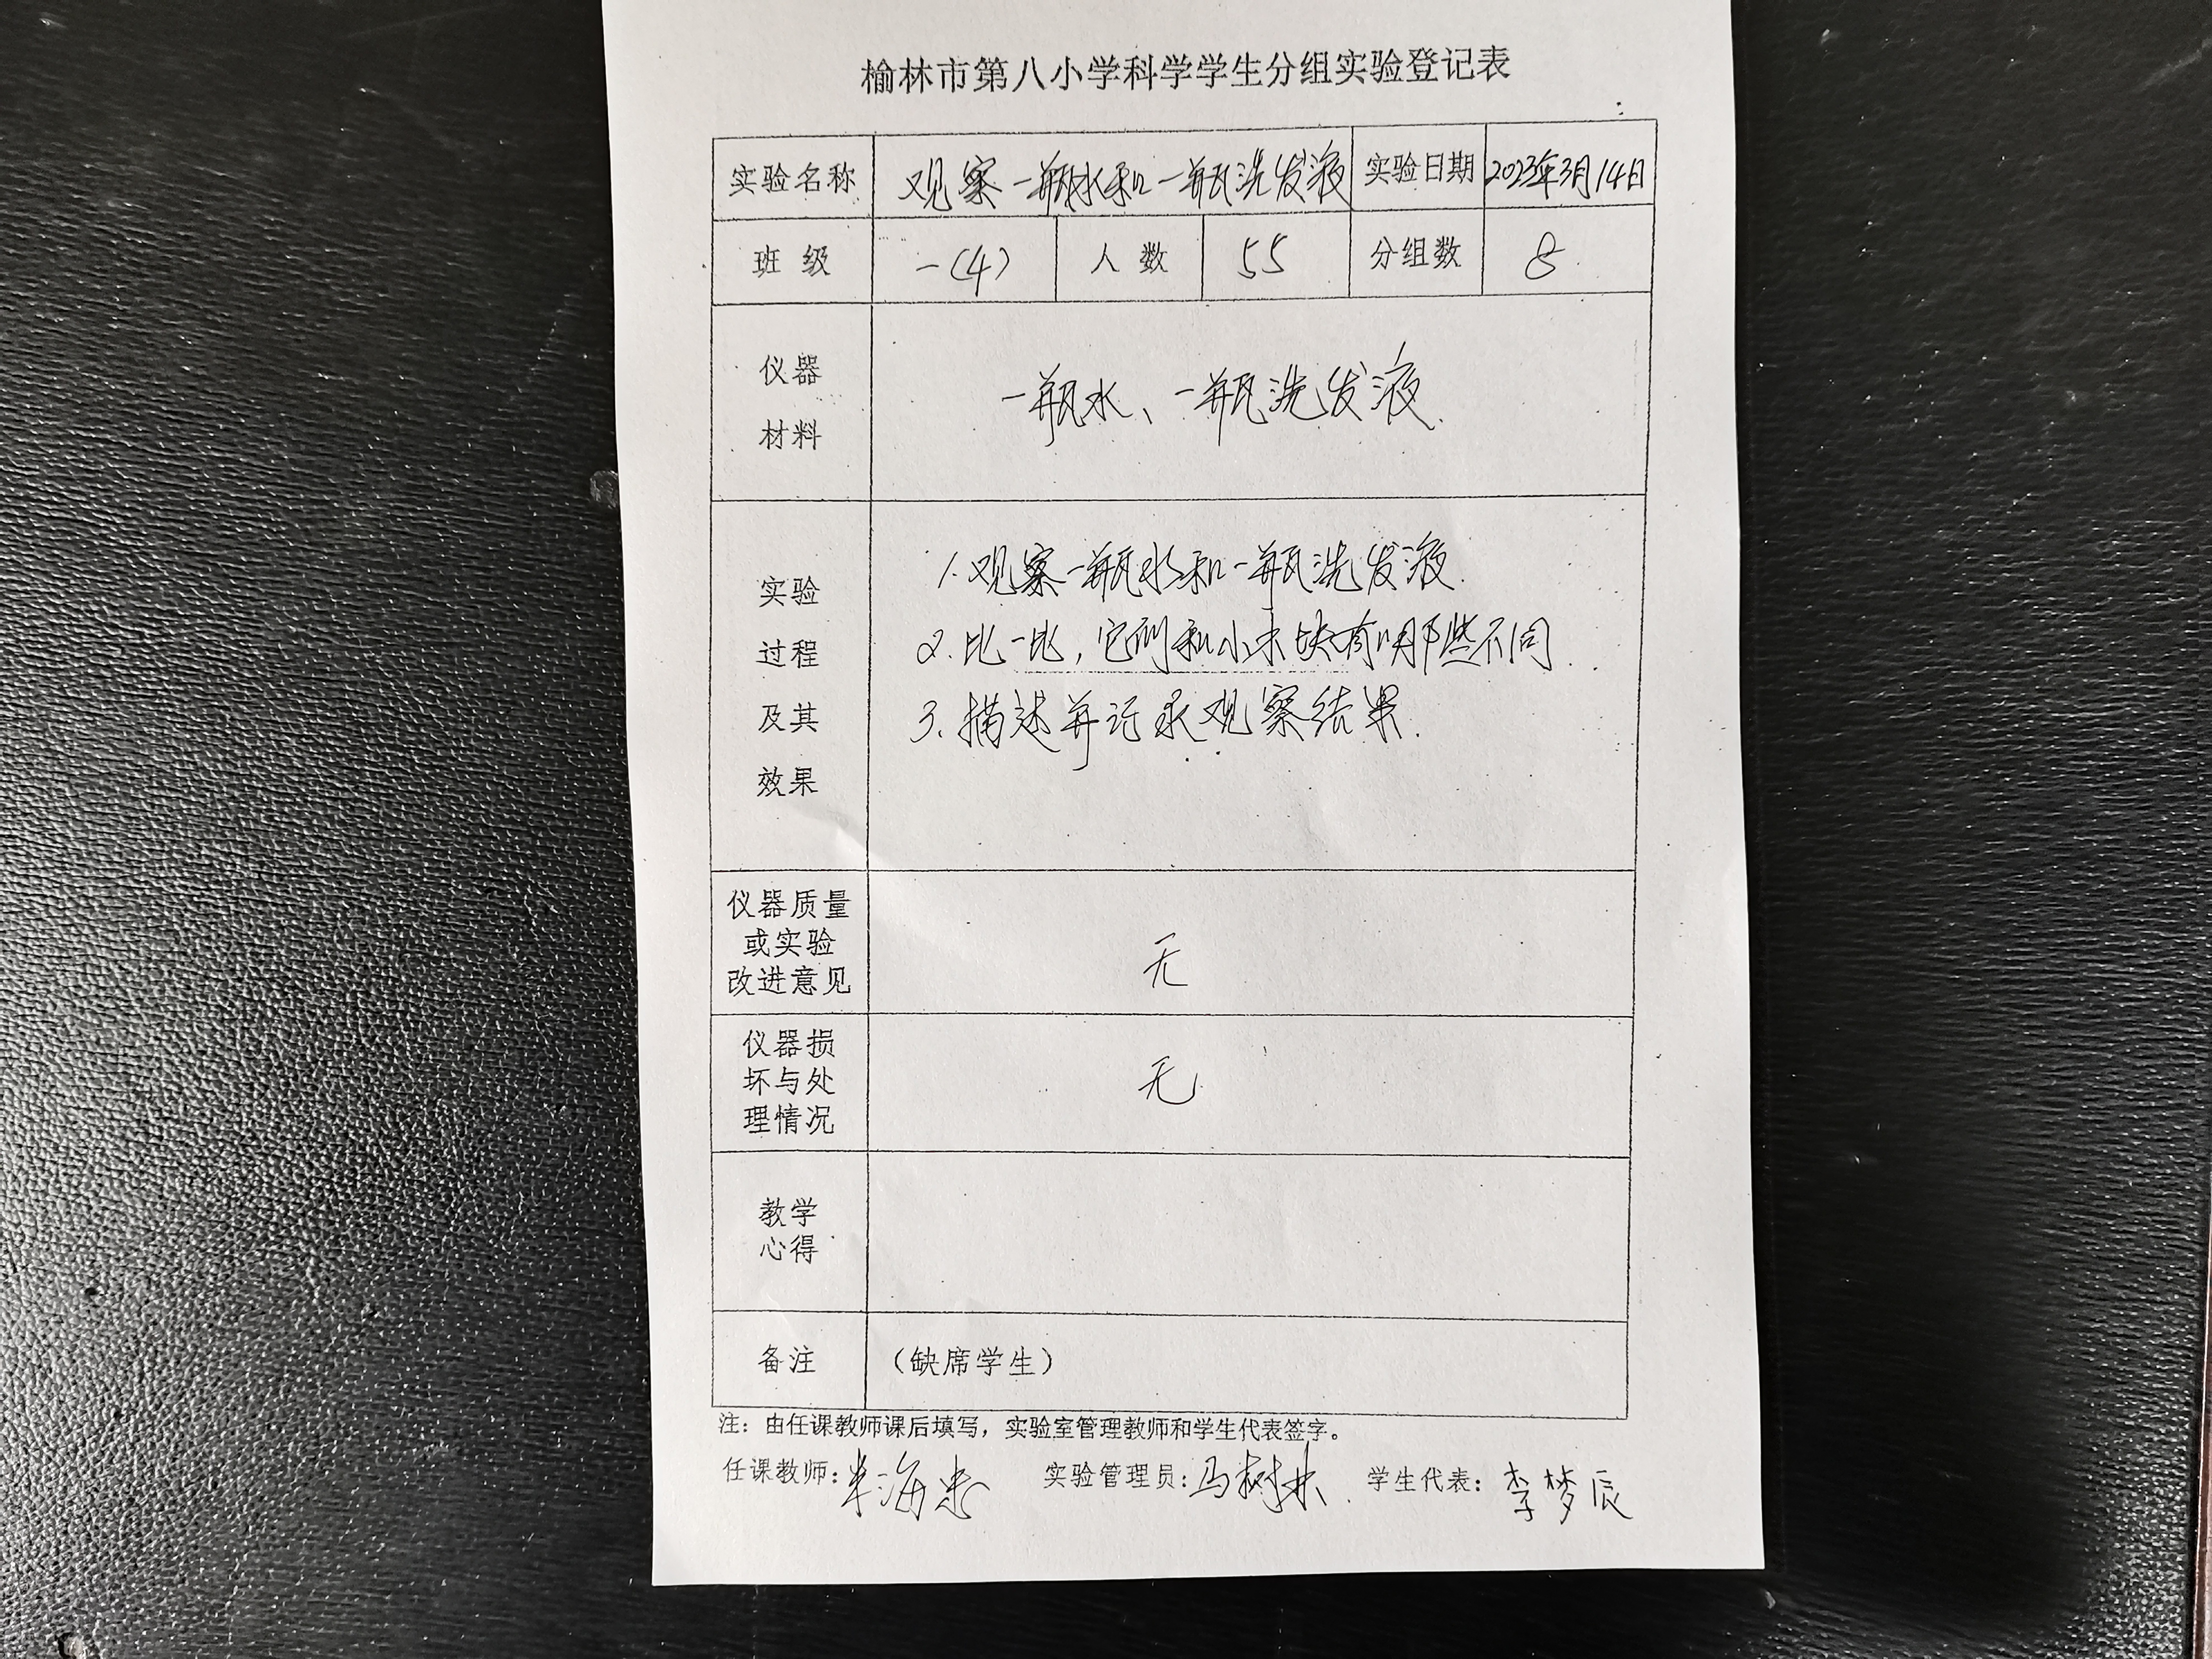 榆林市第八小学科学学生分组实验登记表
实验名称 观察一瓶水和一瓶洗发液 实验日期 2023年3月14日
班级 一(4) 人数 55 分组数 8
仪器
材料
一瓶水、一瓶洗发液.
实验
过程
及其
效果
1.观察一瓶水和一瓶洗发液.
2.比一比,它们和小木块有哪些不同.
3.描述并记录观察结果.
仪器质量
或实验
改进意见
无
仪器损
坏与处
理情况
无
教学
心得
备注 (缺席学生)
注：由任课教师课后填写，实验室管理教师和学生代表签字。
任课教师: 实验管理员:马树林 学生代表:李梦辰